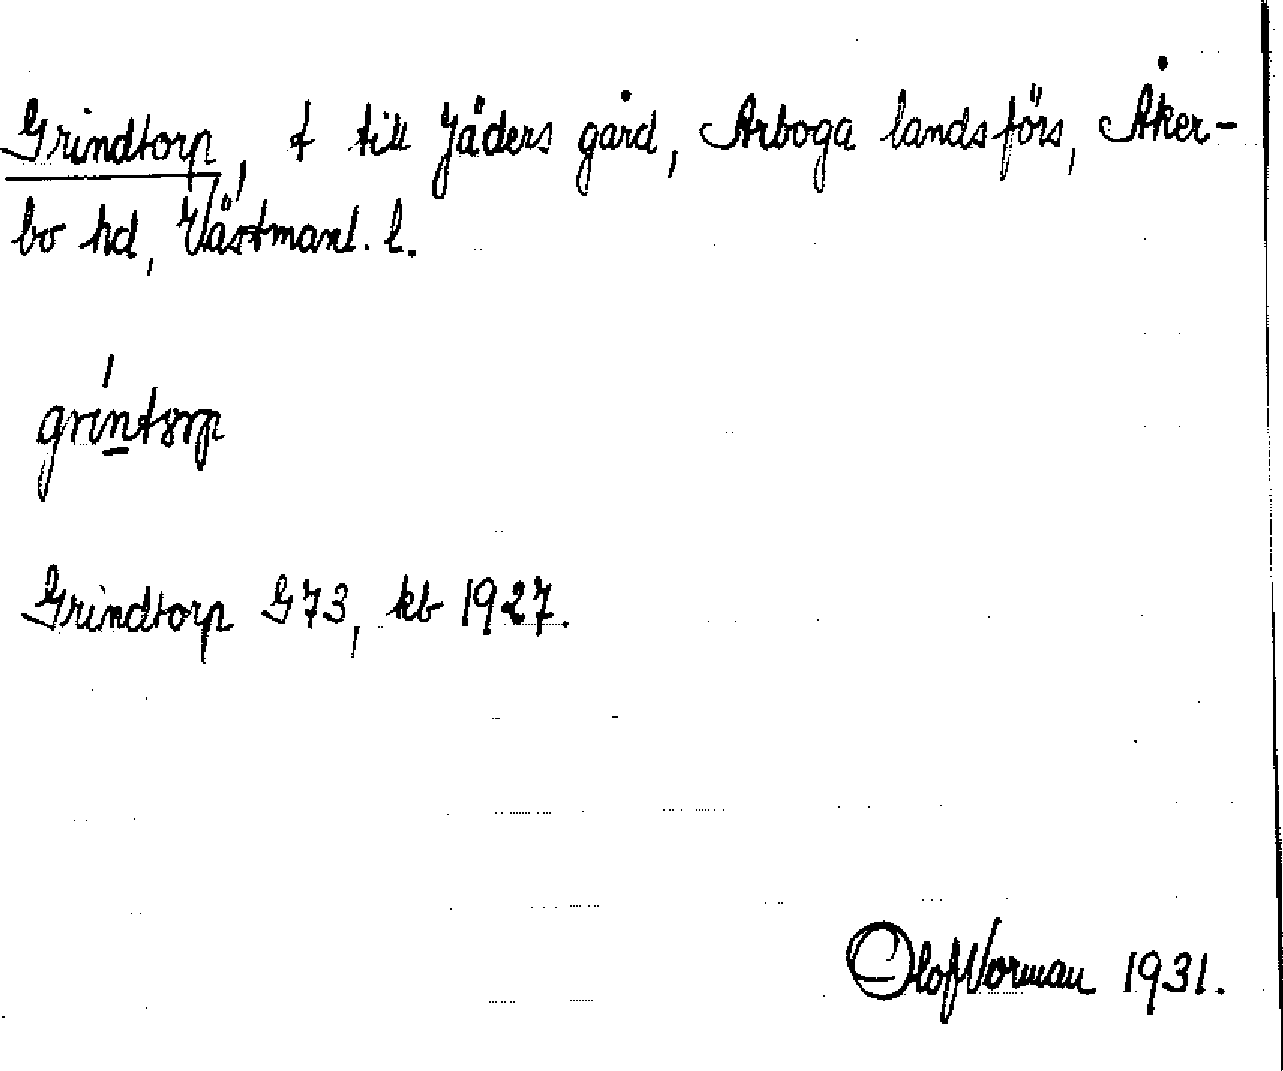 Grindtorp, t till Jäders gård, Arboga landsförs, Åker-
bo hd, Västmanl. l.
grintorp
Grindtorp G73, kb 1927.
Olof Vorman 1931.